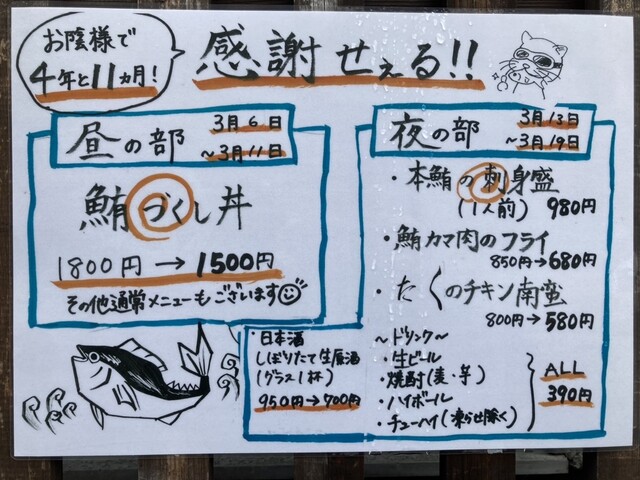 お陰様で
4年と11ヵ月!
感謝せぇる!!
昼の部
3月6日
~3月11日
鮪づくし丼
1800円→1500円
その他通常メニューもございます
夜の部
3月13日
~3月19日
・本鮪の刺身盛
(1人前) 980円
・鮪カマ肉のフライ
850円→680円
・たくのチキン南蛮
800円→580円
・日本酒
しぼりたて生原酒
(グラス1杯)
950円→700円
~ドリンク~
・生ビール
・焼酎(麦・芋)
・ハイボール
・チューハイ(凍らせ除く)
ALL
390円